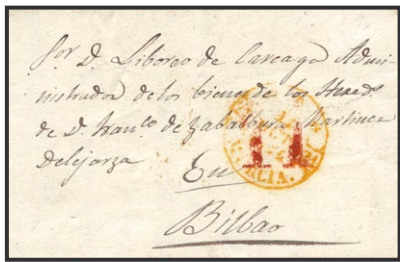 Sor. D. Liboreo de Careaga Admi-
nistrador de los bienes de los Hered.
de D. Franco. de Zabalburu Martinez
Delejarza
En
11
Bilbao